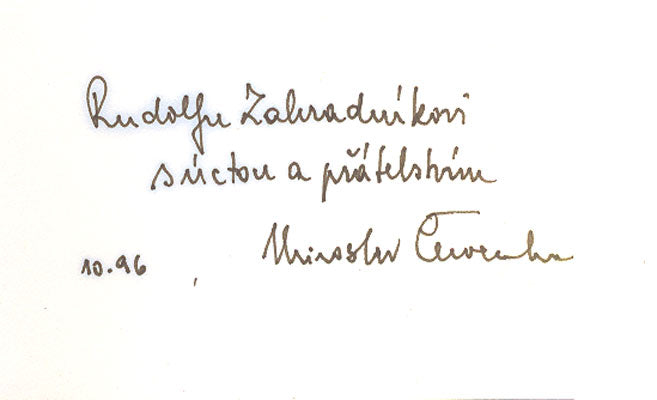 Rudolfu Zahradníkovi
s úctou a přátelstvím
Miroslav Červenka
10.96